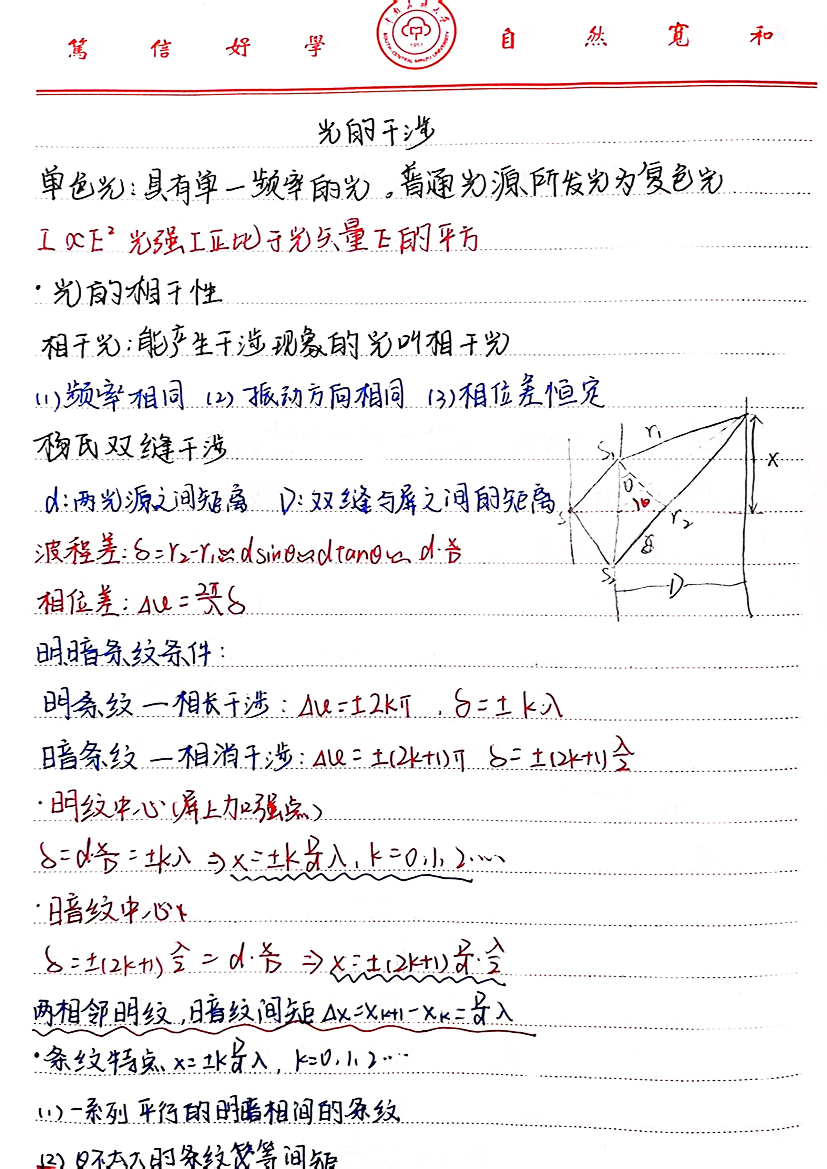 篤信好學 自然寬和
SOUTH-CENTRAL MINZU UNIVERSITY
1951
光的干涉
单色光:具有单一频率的光。普通光源所发光为复色光
I∝E² 光强I正比于光矢量E的平方
·光的相干性
相干光:能产生干涉现象的光叫相干光
(1)频率相同 (2)振动方向相同 (3)相位差恒定
杨氏双缝干涉
d:两光源之间距离 D:双缝与屏之间的距离
S S₁ S₂ r₁ r₂ θ θ δ D x
波程差:δ=r₂-r₁≈dsinθ≈dtanθ≈d·x/D
相位差:Δφ=2π/λ δ
明暗条纹条件:
明条纹—相长干涉:Δφ=±2kπ,δ=±kλ
暗条纹—相消干涉:Δφ=±(2k+1)π δ=±(2k+1)λ/2
·明纹中心(屏上加强点)
δ=d·x/D=±kλ ⇒ x=±k D/d λ,k=0,1,2…
·暗纹中心
δ=±(2k+1)λ/2=d·x/D ⇒ x=±(2k+1)D/d·λ/2
两相邻明纹,暗纹间距Δx=xₖ₊₁-xₖ=D/d λ
·条纹特点 x=±k D/d λ,k=0,1,2…
(1)一系列平行的明暗相间的条纹
(2)θ不太大时条纹等间距